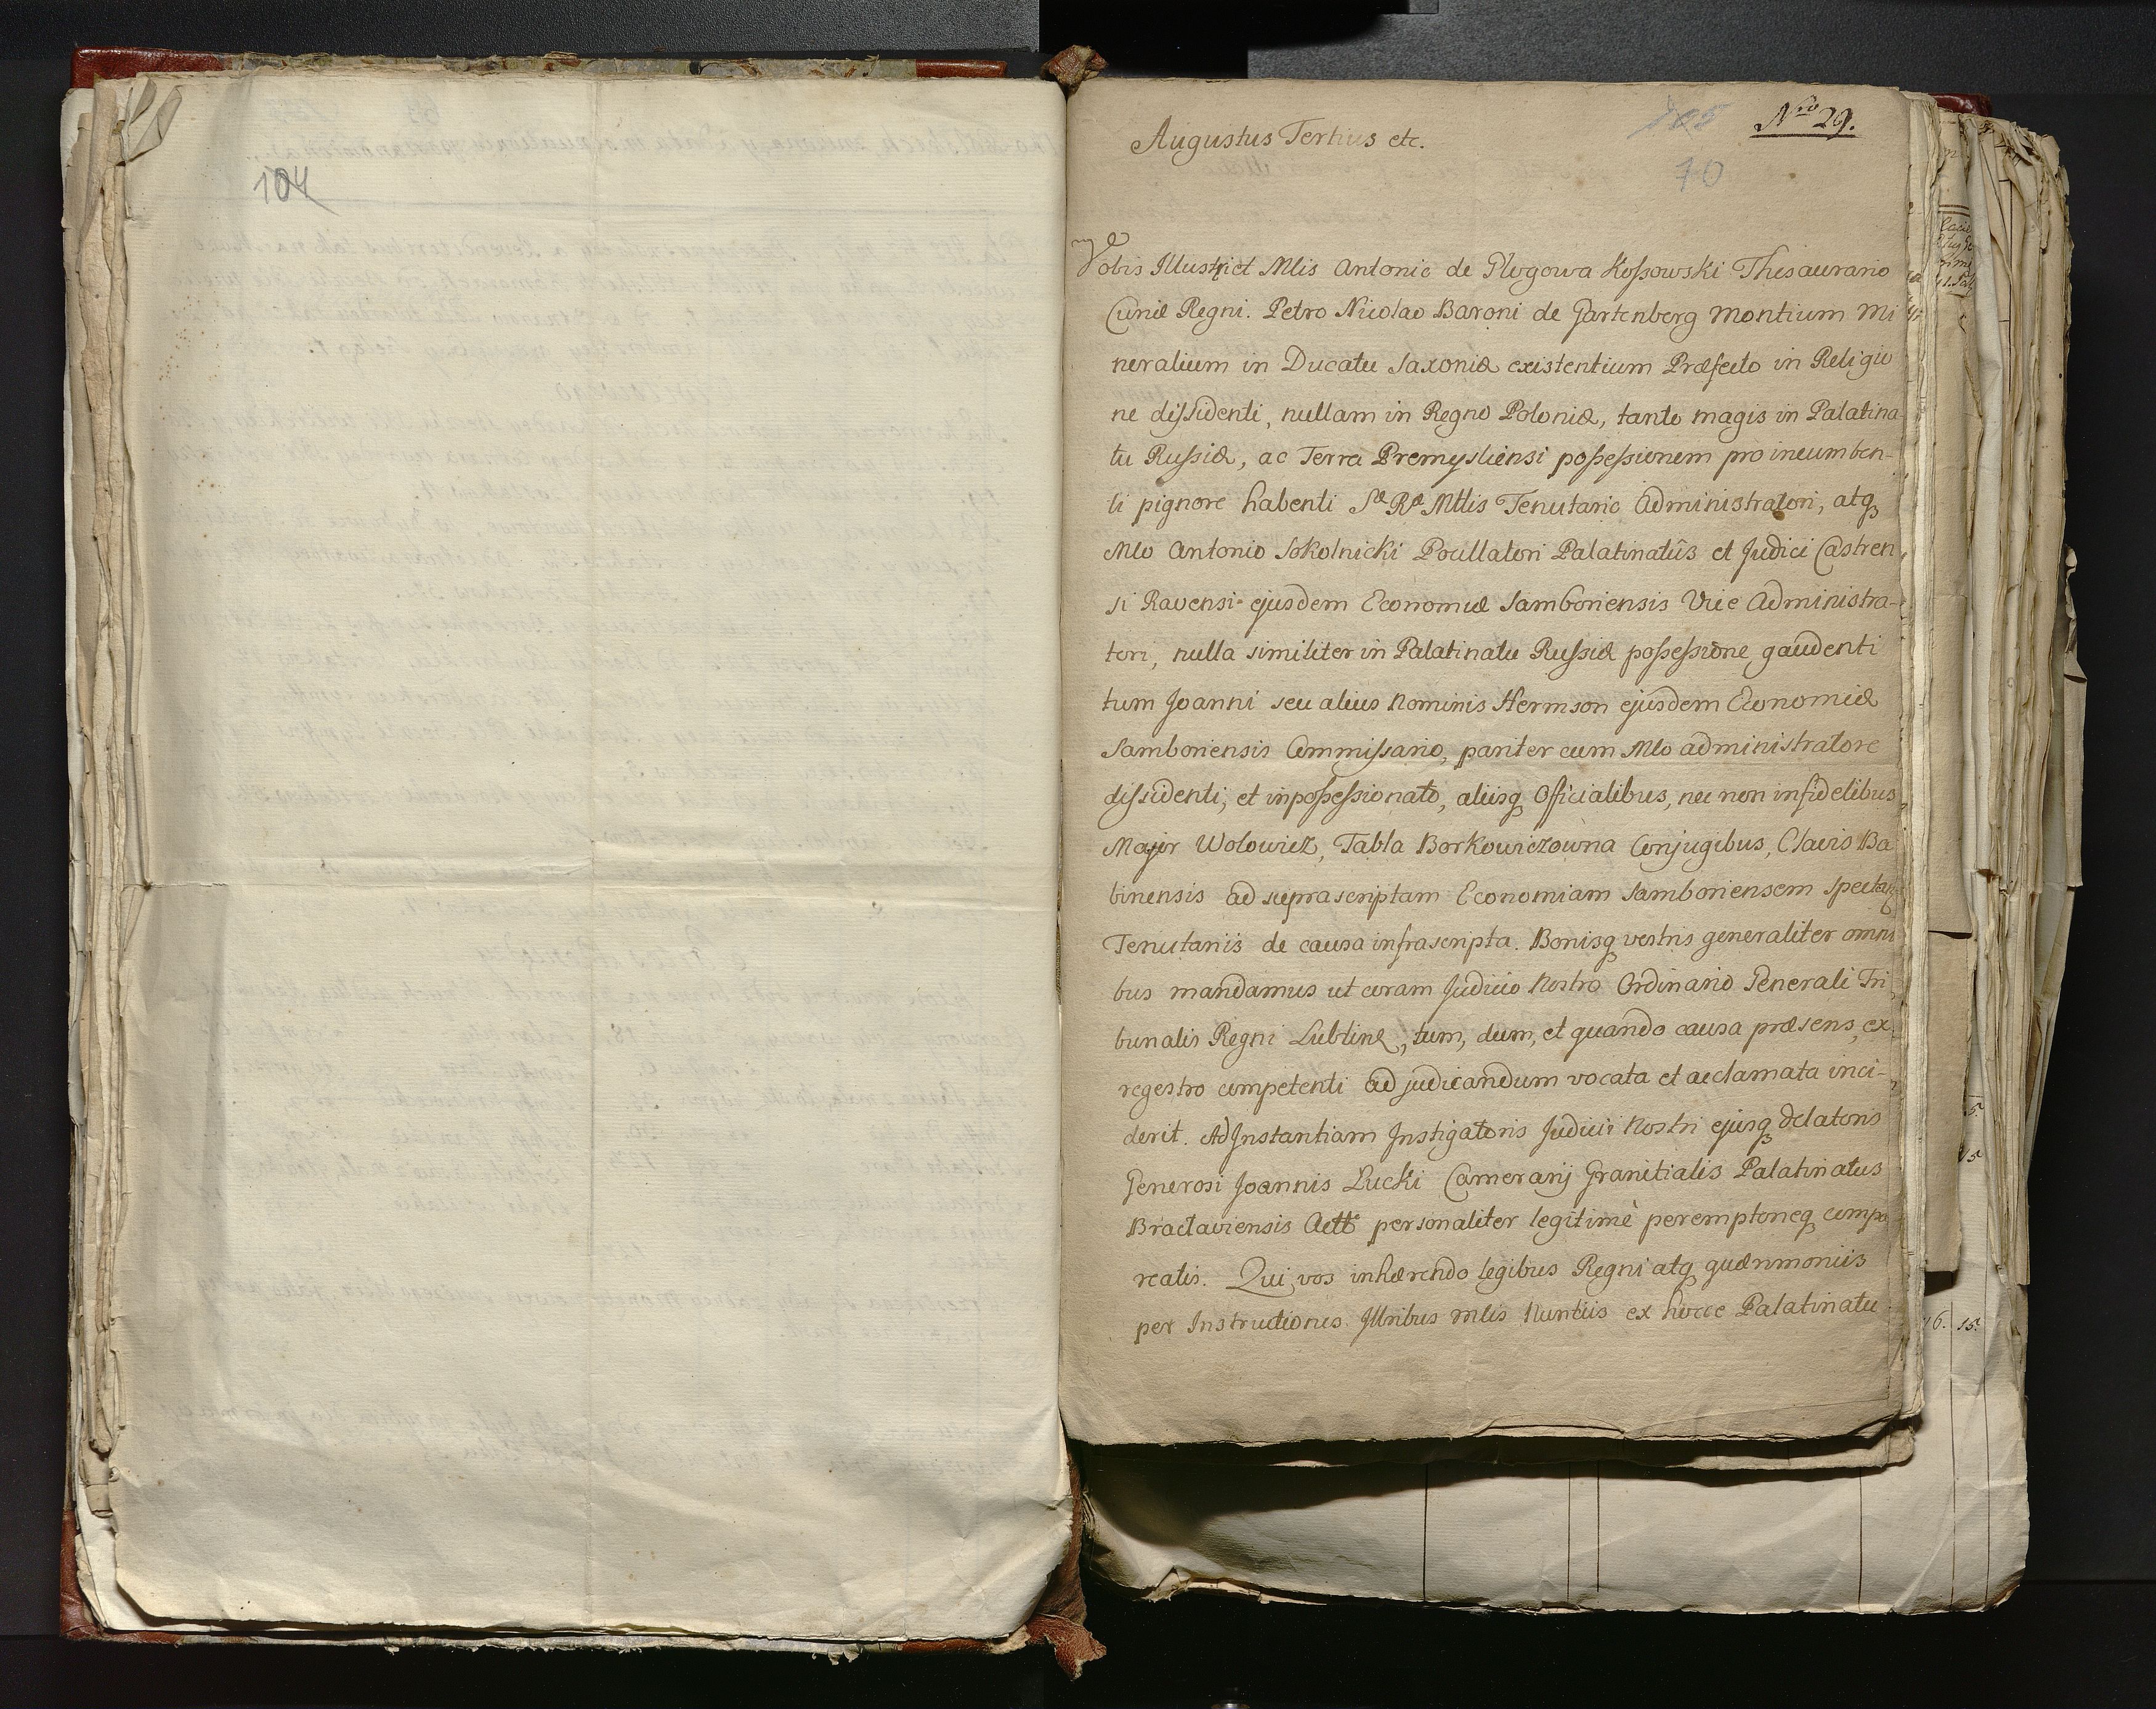 104
Nro 29.
105
70
Augustus Tertius etc.
Vobis Illustri et Mlis Antonio de Glogowa Kossowski Thesaurario
Curiæ Regni. Petro Nicolao Baroni de Gartenberg Montium Mi
neralium in Ducatu Saxoniæ existentium Præfecto in Religio
ne dissidenti, nullam in Regno Poloniæ, tanto magis in Palatina
tu Russiæ, ac Terra Premysliensi possessionem pro incumben-
ti pignore habenti Sæ Ræ Mttis Tenutario Administratori, atq
Mlo Antonio Sokolnicki Pocillatori Palatinatûs et Judici Castren
si Ravensi ejusdem Economiæ Samboriensis Vice Administra-
tori, nulla similiter in Palatinatu Russiæ possessione gaudenti
tum Joanni seu alius Nominis Hermson ejusdem Economiæ
Samboriensis Commissario, pariter cum Mlo administratore
dissidenti, et inpossessionato, aliisq Officialibus, nec non infidelibus
Major Wolowicz, Tabla Borkowiczowna Conjugibus, Clavis Ba
binensis ad suprascriptam Economiam Samboriensem spectan
Tenutariis de causa infrascripta. Bonisq vestris generaliter omni
bus mandamus ut coram Judicio Nostro Ordinario Generali Tri
bunalis Regni Lublinæ, tum, dum, et quando causa præsens, ex
regestro competenti ad judicandum vocata et acclamata inci-
derit. Ad Instantiam Instigatoris Judicii Nostri ejusq delatoris
Generosi Joannis Lucki Camerarij Granitialis Palatinatus
Bractaviensis Actt personaliter legitimè peremptorieq compa
reatis. Qui vos inhærendo legibus Regni atq quærimoniis
per Instructiones Illribus Mlis Nuntiis ex hocce Palatinatu